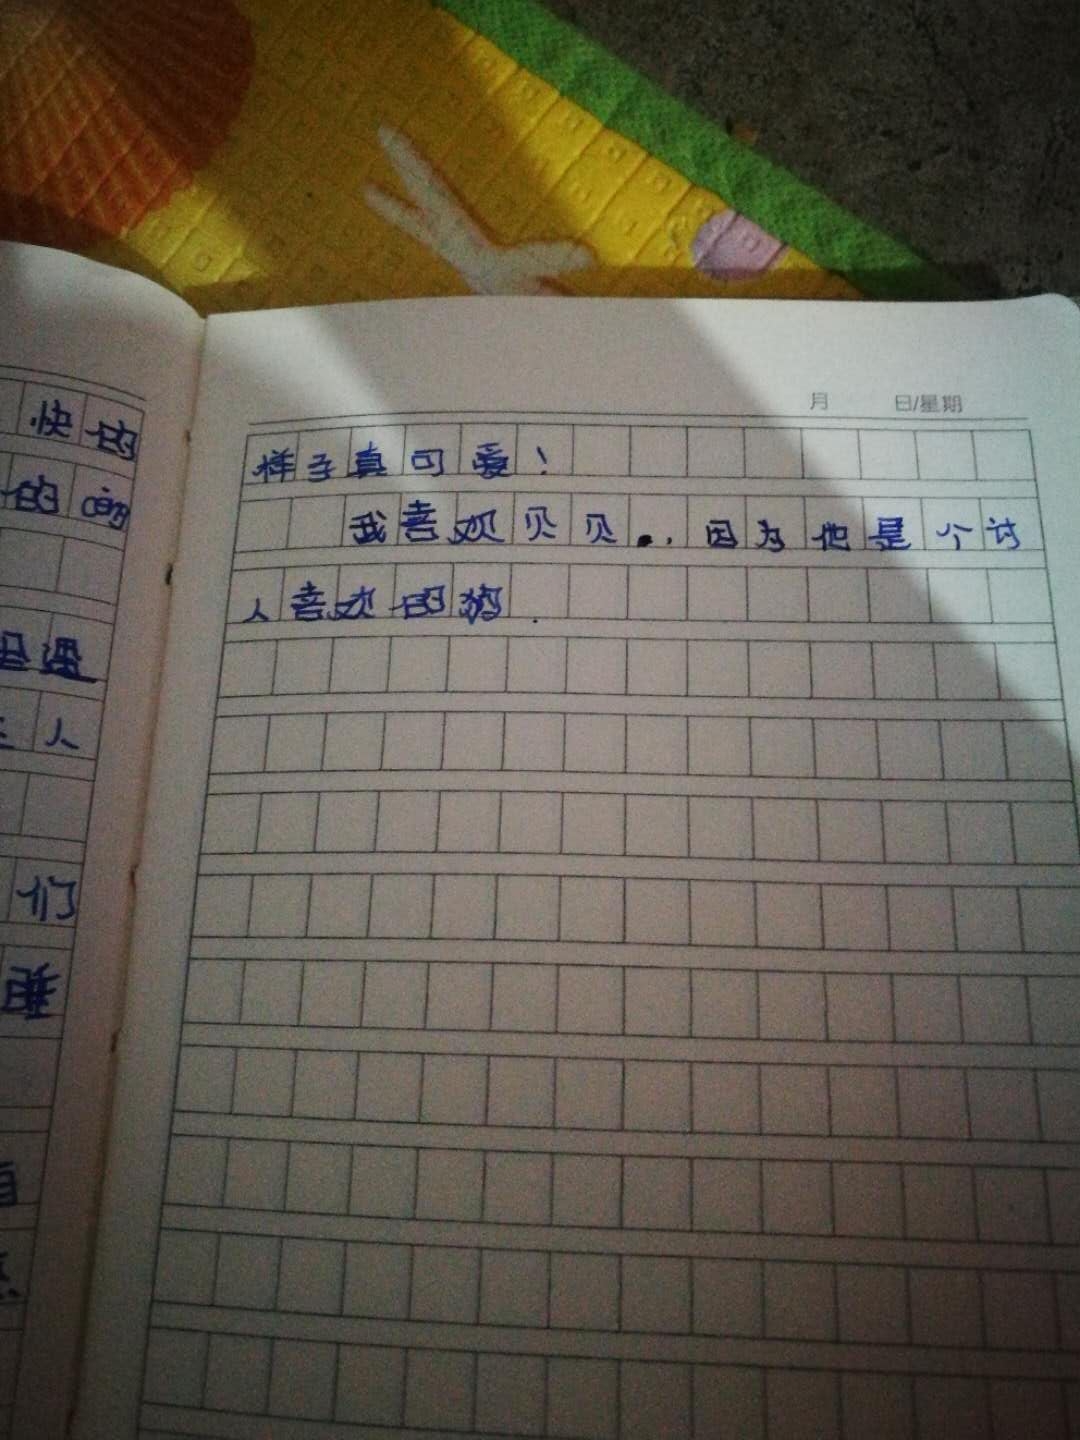 快的
的
遇
人
们
睡
月 日/星期
样子真可爱！
我喜欢贝贝.，因为他是个讨
人喜欢的狗.